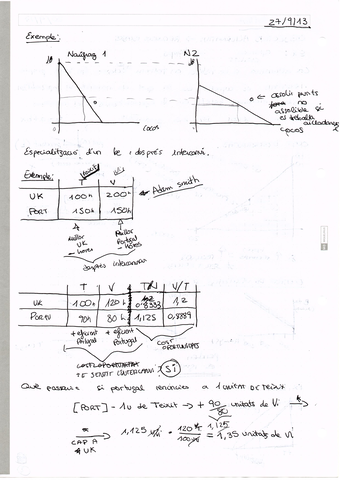 27/9/13
Exemple:
Naüfrag 1
N2
10
cocos
assolir punts
no
assolible si
es treballa
cocos
Especialització d'un be i després intercanvi.
Exemple:
T V
UK 100h 200h
PORT 150h 150h
Adam Smith
Millor
UK
- hores
Millor
Portugal
- hores
T V T/V V/T
UK 100h 120h 0.8333 1,2
PORTU 90h 80h 1,125 0,8889
+ eficient
Portugal
+ eficient
Portugal
COST
OPORTUNITATS
TE SENTIT INTERCANVI: Sí
Que passaria si portugal renuncies a 1 unitat DE TEIXIT
[PORT] - 1u de Teixit → + 90/80 unitats de Vi
1,125
CAP A
UK
1,125 · 120/100 = 1,35 unitats de Vi